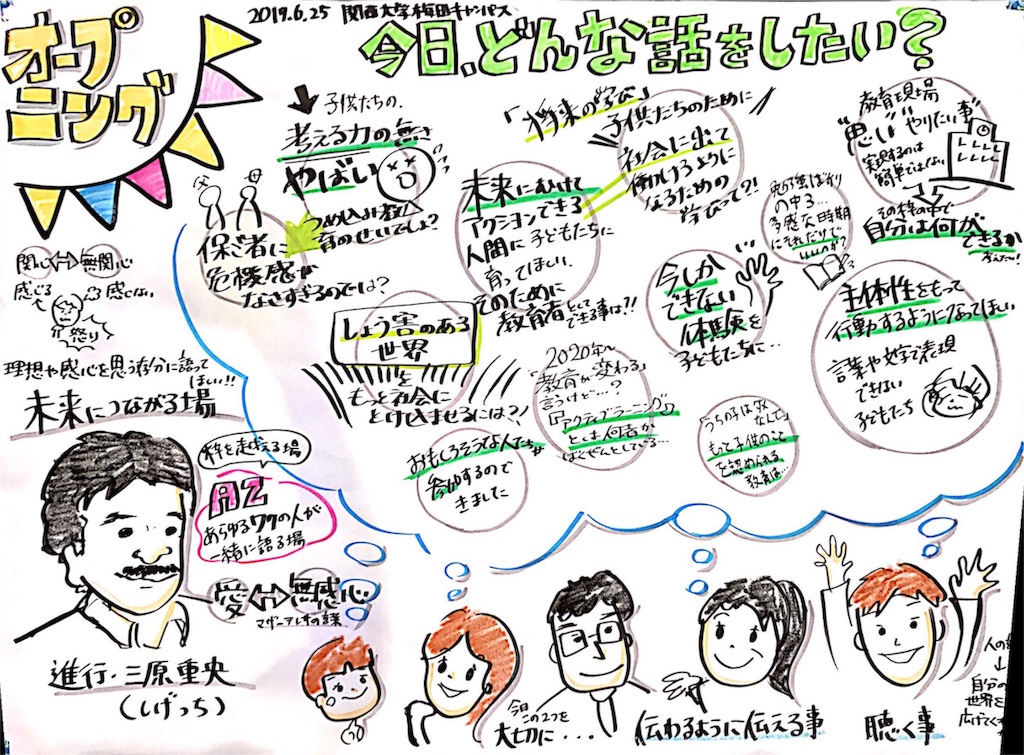 2019.6.25 関西大学梅田キャンパス
オープ
ニング
今日、どんな話をしたい？
子供たちの、
考える力の無さ
やばい
うめ込み教
育のせいでしょ？
父
母
保ご者に
危機感が
なさすぎるのでは？
「将来の学び」
未来にむけて
アクションできる
人間に子どもたちに
育ってほしい、
そのために
教育者として
できる事は？！
子供たちのために
社会に出て
働けるように
なるための
学びって？！
教育現場
"思い" "やりたい事"
実現するのは
簡単ではない
その枠の中で
自分は何が
できるか
考えたい！
勉強ばかり
の中高…
多感な時期
にそれだけで
いいのか？
今しか
できない
体験を
子どもたちに…
主体性をもって
行動するようになってほしい
言葉や文字で表現
できない
子どもたち
しょう害のある
世界
を
もっと社会に
とけ込ませるには？！
「2020年〜
教育が変わる」
言うけど…？
「アクティブラーニング」
とは何ぞか
ばくぜんとしている…
「うちの子は、ダメ
なんで」
もっと子供のこと
を認められる
教育は…
おもしろそうな人たちが
参加するので
きました
関心⇔無関心
感じる
感じない
怒り
理想や感心を思う存分に語って
ほしい！！
未来につながる場
枠を超える場
AZ
あらゆるワクの人が
一緒に語る場
愛⇔無感心
マザーテレサの言葉
進行・三原重央
（しげっち）
今日
この2つを
大切に・・・
伝わるように伝える事
聴く事
人の
自分の
世界を
広げてく